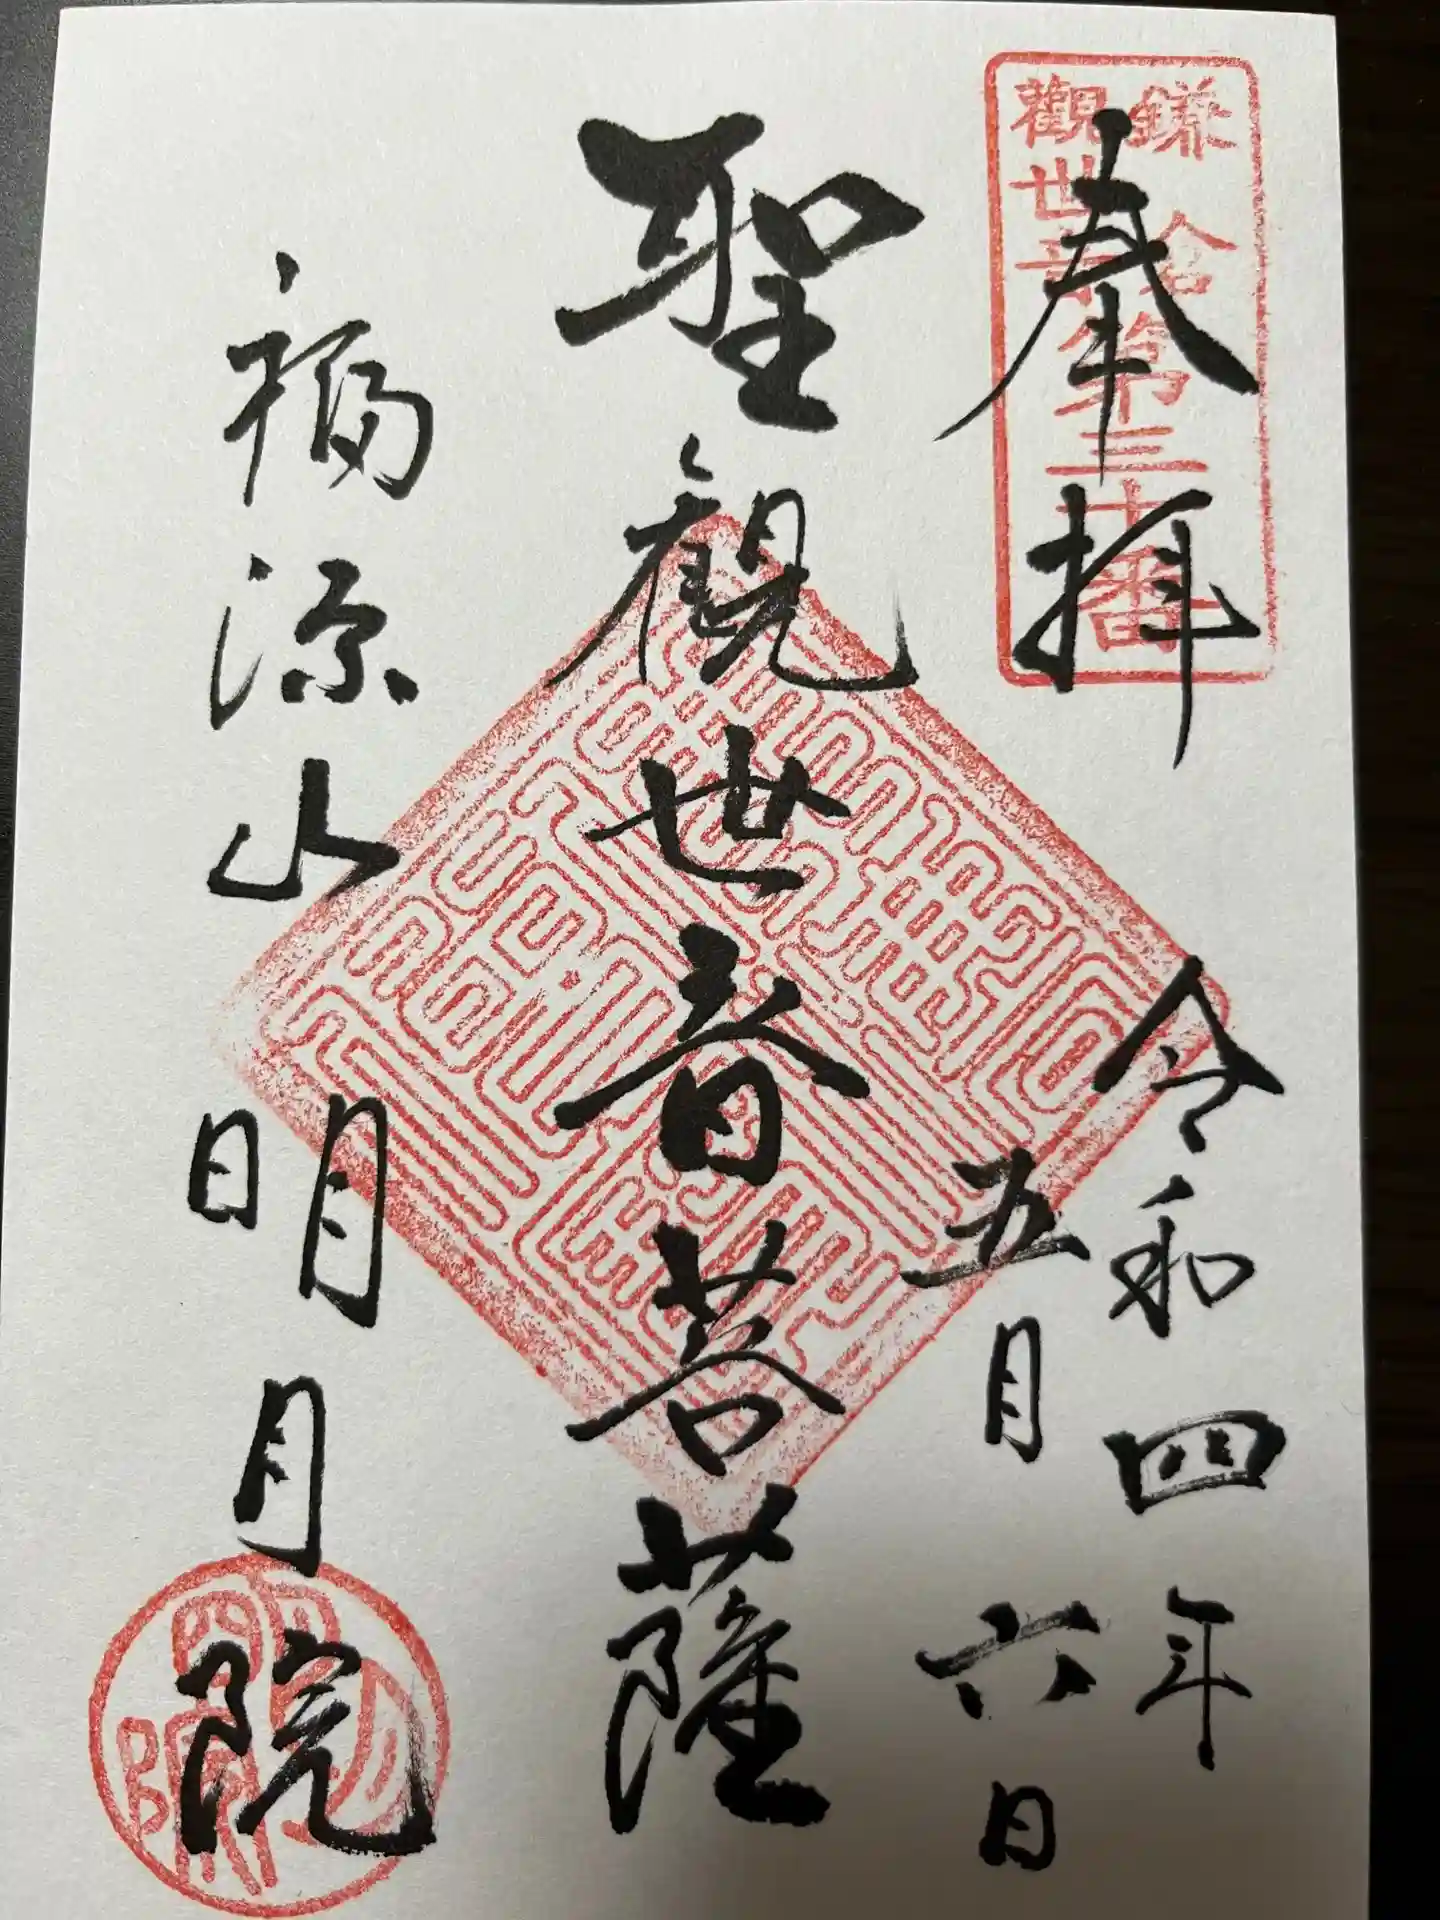 奉拝
鎌倉
觀世音
第三十番
令和四年
五月六日
聖觀世音菩薩
福源山
明月院